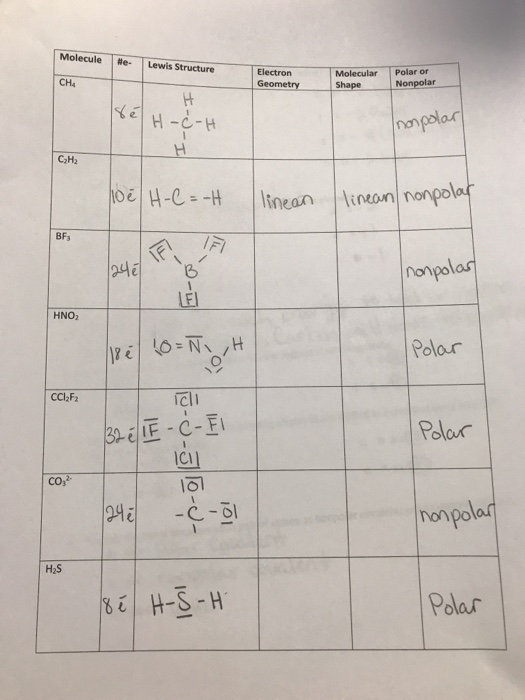 Molecule #e- Lewis Structure Electron Geometry Molecular Shape Polar or Nonpolar
CH₄
H
8ē H-C-H nonpolar
H
C₂H₂
10ē H-C=-H linear linear nonpolar
BF₃
|F| |F|
24ē B nonpolar
|F|
HNO₂
18ē |O=N H Polar
O
CCl₂F₂
|Cl|
32ē |F-C-F| Polar
|Cl|
CO₃²⁻
|O|
24ē -C-O| nonpolar
H₂S
8ē H-S-H Polar